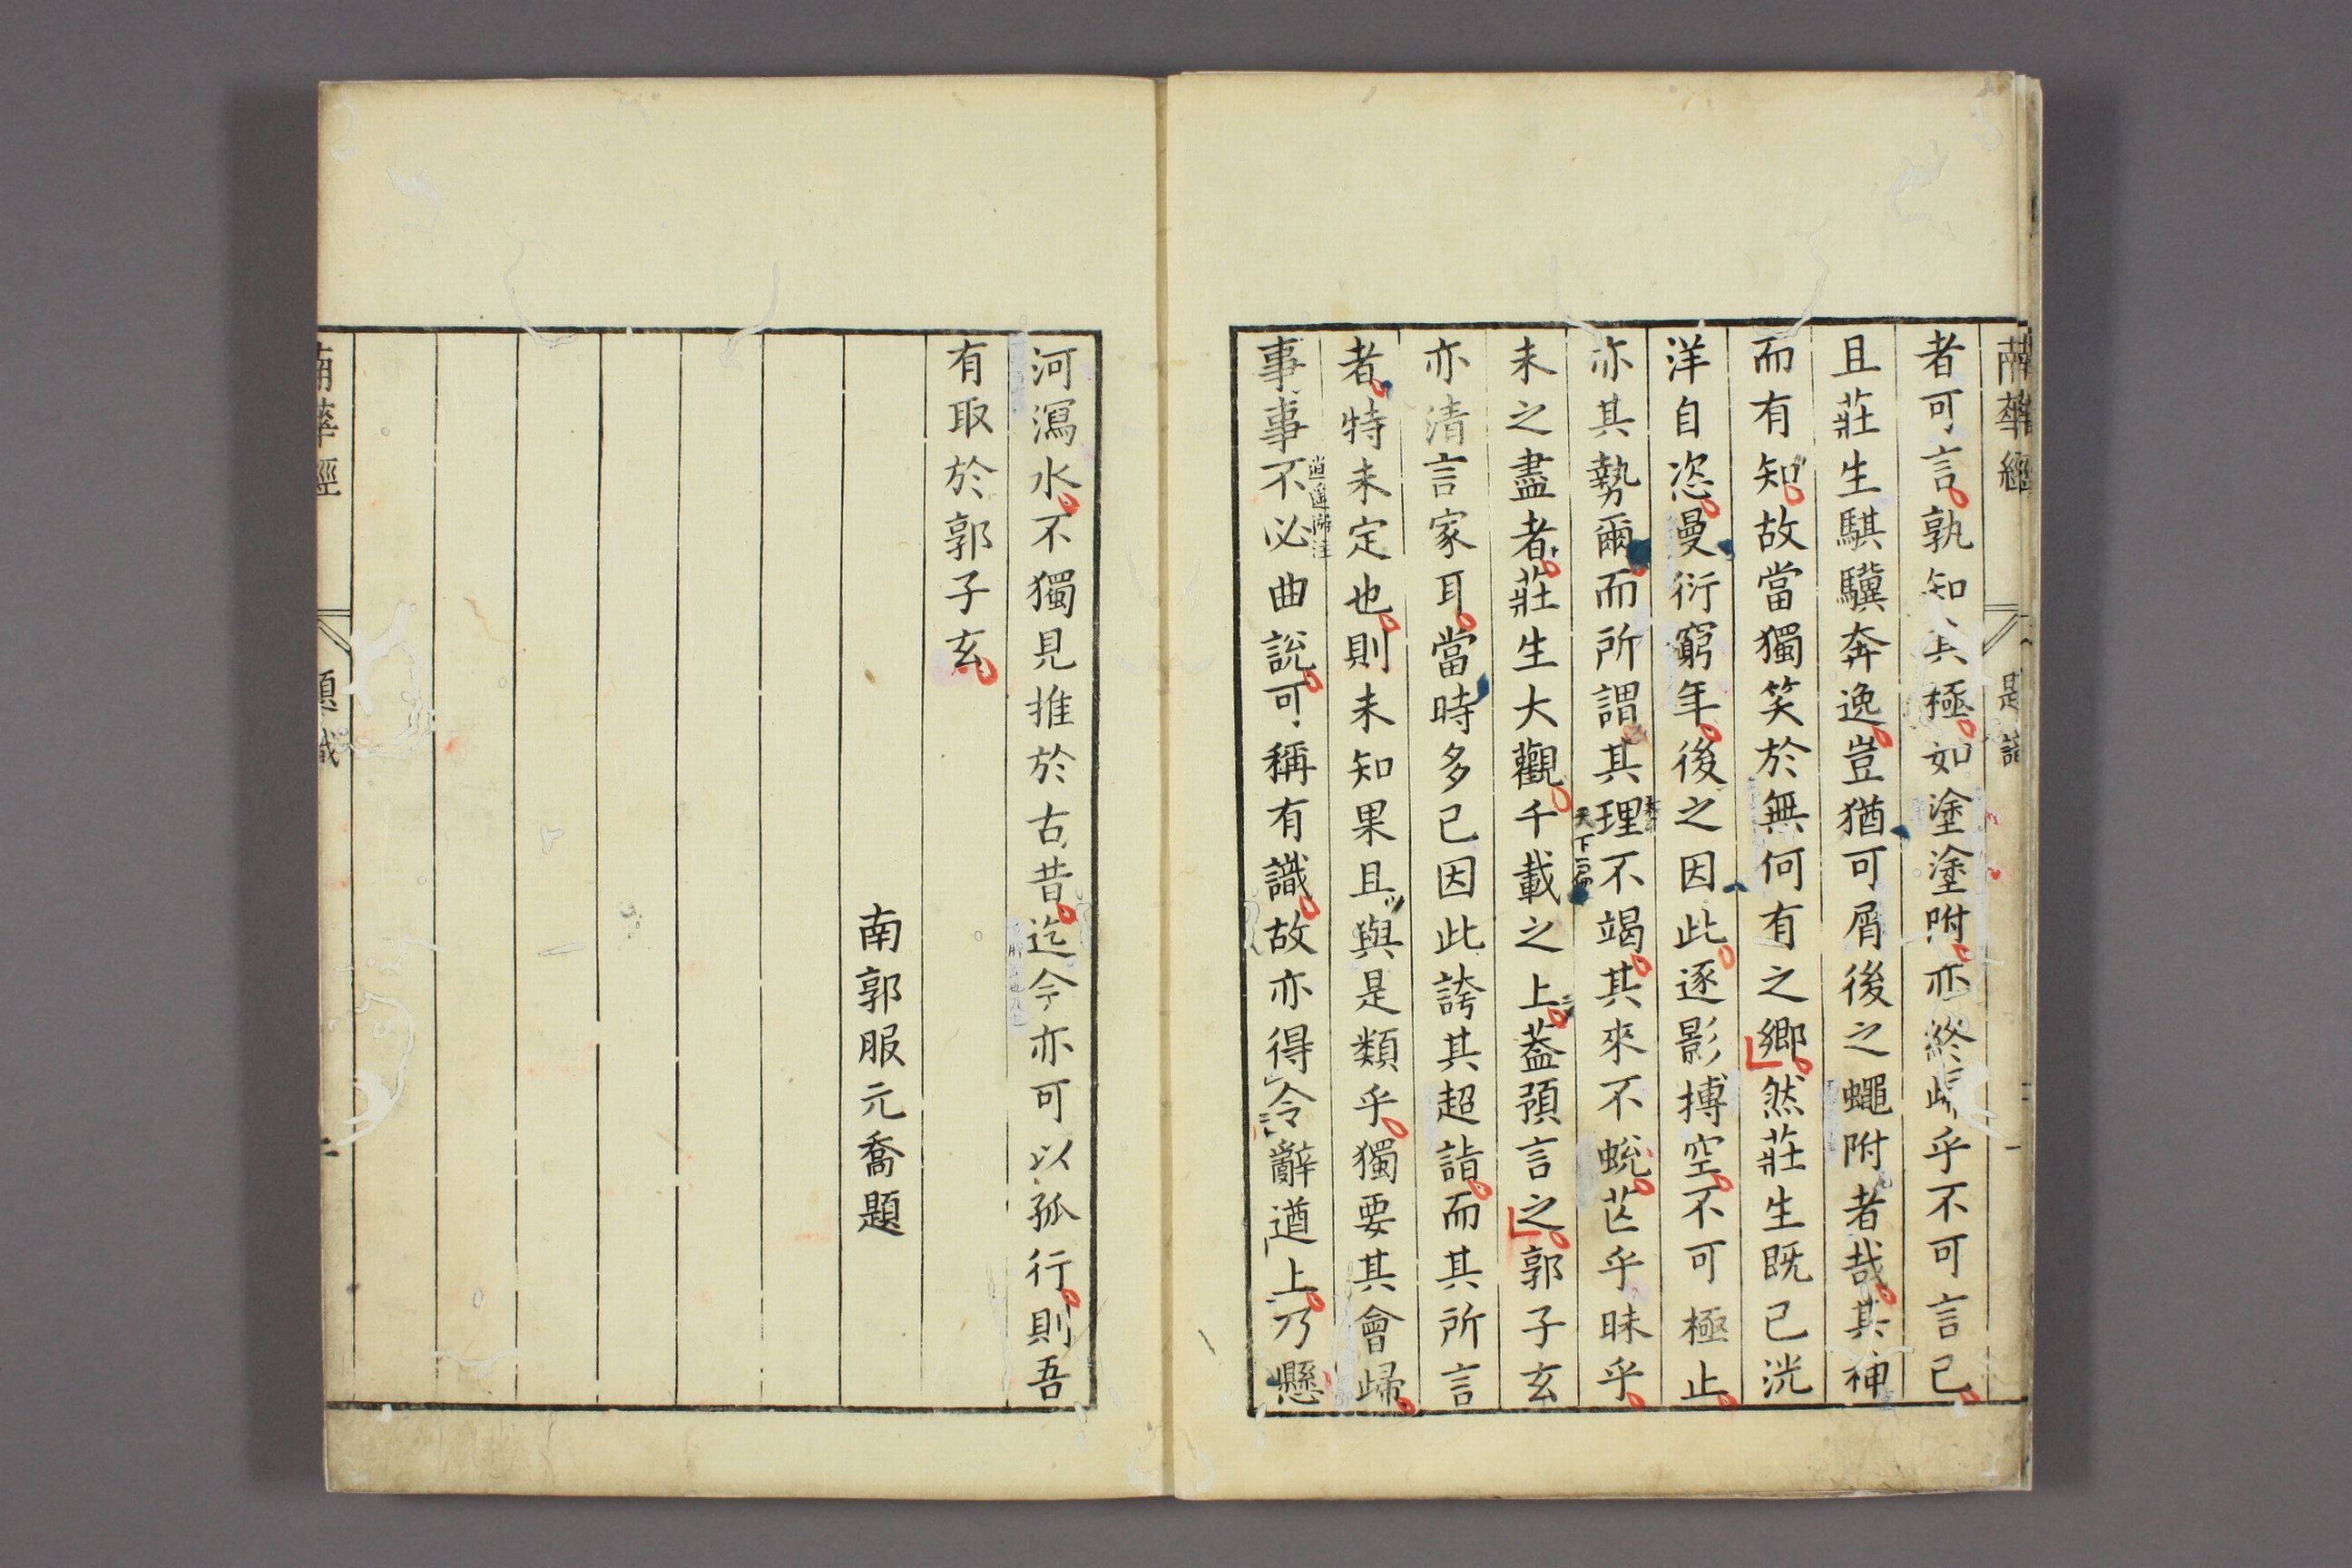 南華經
者可言孰知其極如塗塗附亦終岐乎不可言已
且莊生騏驥奔逸豈猶可屑後之蠅附者哉其神
而有知故當獨笑於無何有之鄉然莊生既已洸
洋自恣曼衍窮年後之因此逐影搏空不可極止
亦其勢爾而所謂其理不竭其來不蛻芒乎昧乎
天下篇
未之盡者莊生大觀千載之上蓋預言之郭子玄
亦清言家耳當時多已因此誇其超詣而其所言
者特未定也則未知果且與是類乎獨要其會歸
逍遙游注
事事不必曲說可稱有識故亦得令辭遒上乃懸
河瀉水不獨見推於古昔迄今亦可以孤行則吾
有取於郭子玄
南郭服元喬題
南華經